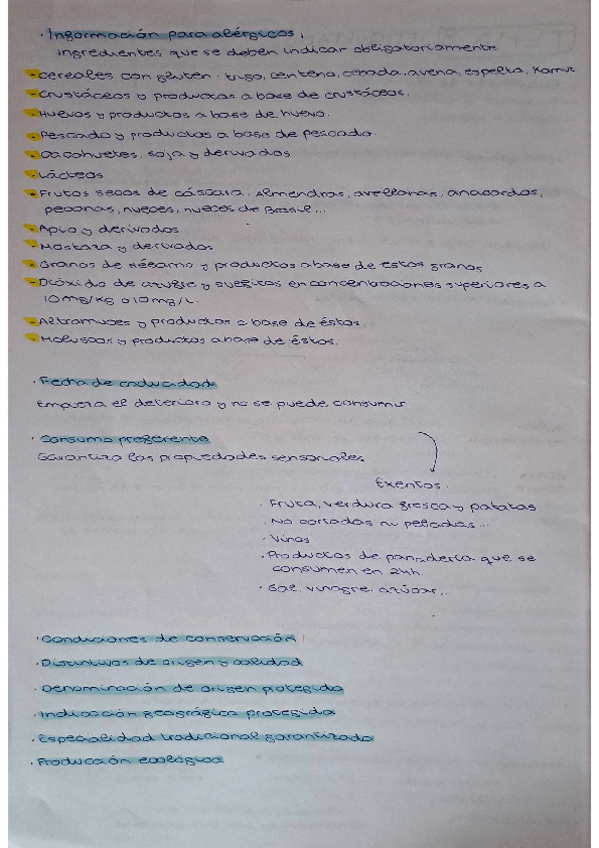 · Información para alérgicos:
ingredientes que se deben indicar obligatoriamente
- Cereales con gluten: trigo, centeno, cebada, avena, espelta, Kamut
- Crustáceos y productos a base de crustáceos.
- Huevos y productos a base de huevo.
- Pescado y productos a base de pescado.
- Cacahuetes, soja y derivados
- Lácteos
- Frutos secos de cáscara: Almendras, avellanas, anacardos,
pecanas, nueces, nueces de Brasil...
- Apio y derivados
- Mostaza y derivados
- Granos de sésamo y productos a base de estos granos
- Dióxido de azufre y sulfitos en concentraciones superiores a
10mg/Kg o 10mg/L.
- Altramuces y productos a base de éstos.
- Moluscos y productos a base de éstos.
· Fecha de caducidad
Empieza el deterioro y no se puede consumir
· Consumo preferente
Garantiza las propiedades sensoriales.
Exentos.
· Fruta, verdura fresca y patatas
· No cortadas ni peladas...
· Vinos
· Productos de panadería que se
consumen en 24h.
· Sal, vinagre, azúcar...
· Condiciones de conservación
· Distintivos de origen y calidad
· Denominación de origen protegida
· Indicación geográfica protegida
· Especialidad tradicional garantizada
· Producción ecológica